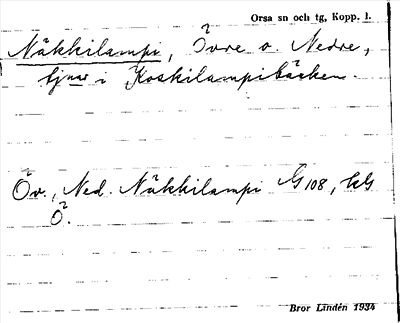 Orsa sn och tg, Kopp. l.
Näkkilampi, Övre o. Nedre,
tjnar i Koskilampibäcken.
Öv., Ned. Näkkilampi G 108, kG
Ö.
Bror Lindén 1934